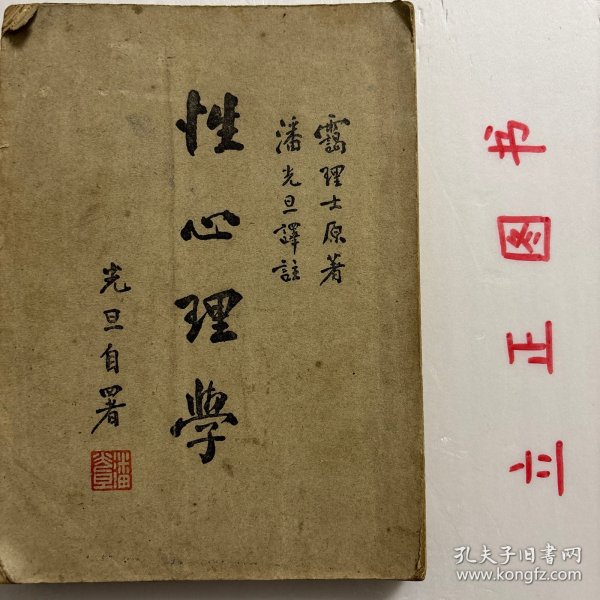 靄理士原著
潘光旦譯註
性心理學
光旦自署
潘光旦
立正图书
孔夫子旧书网
www.kongfz.com